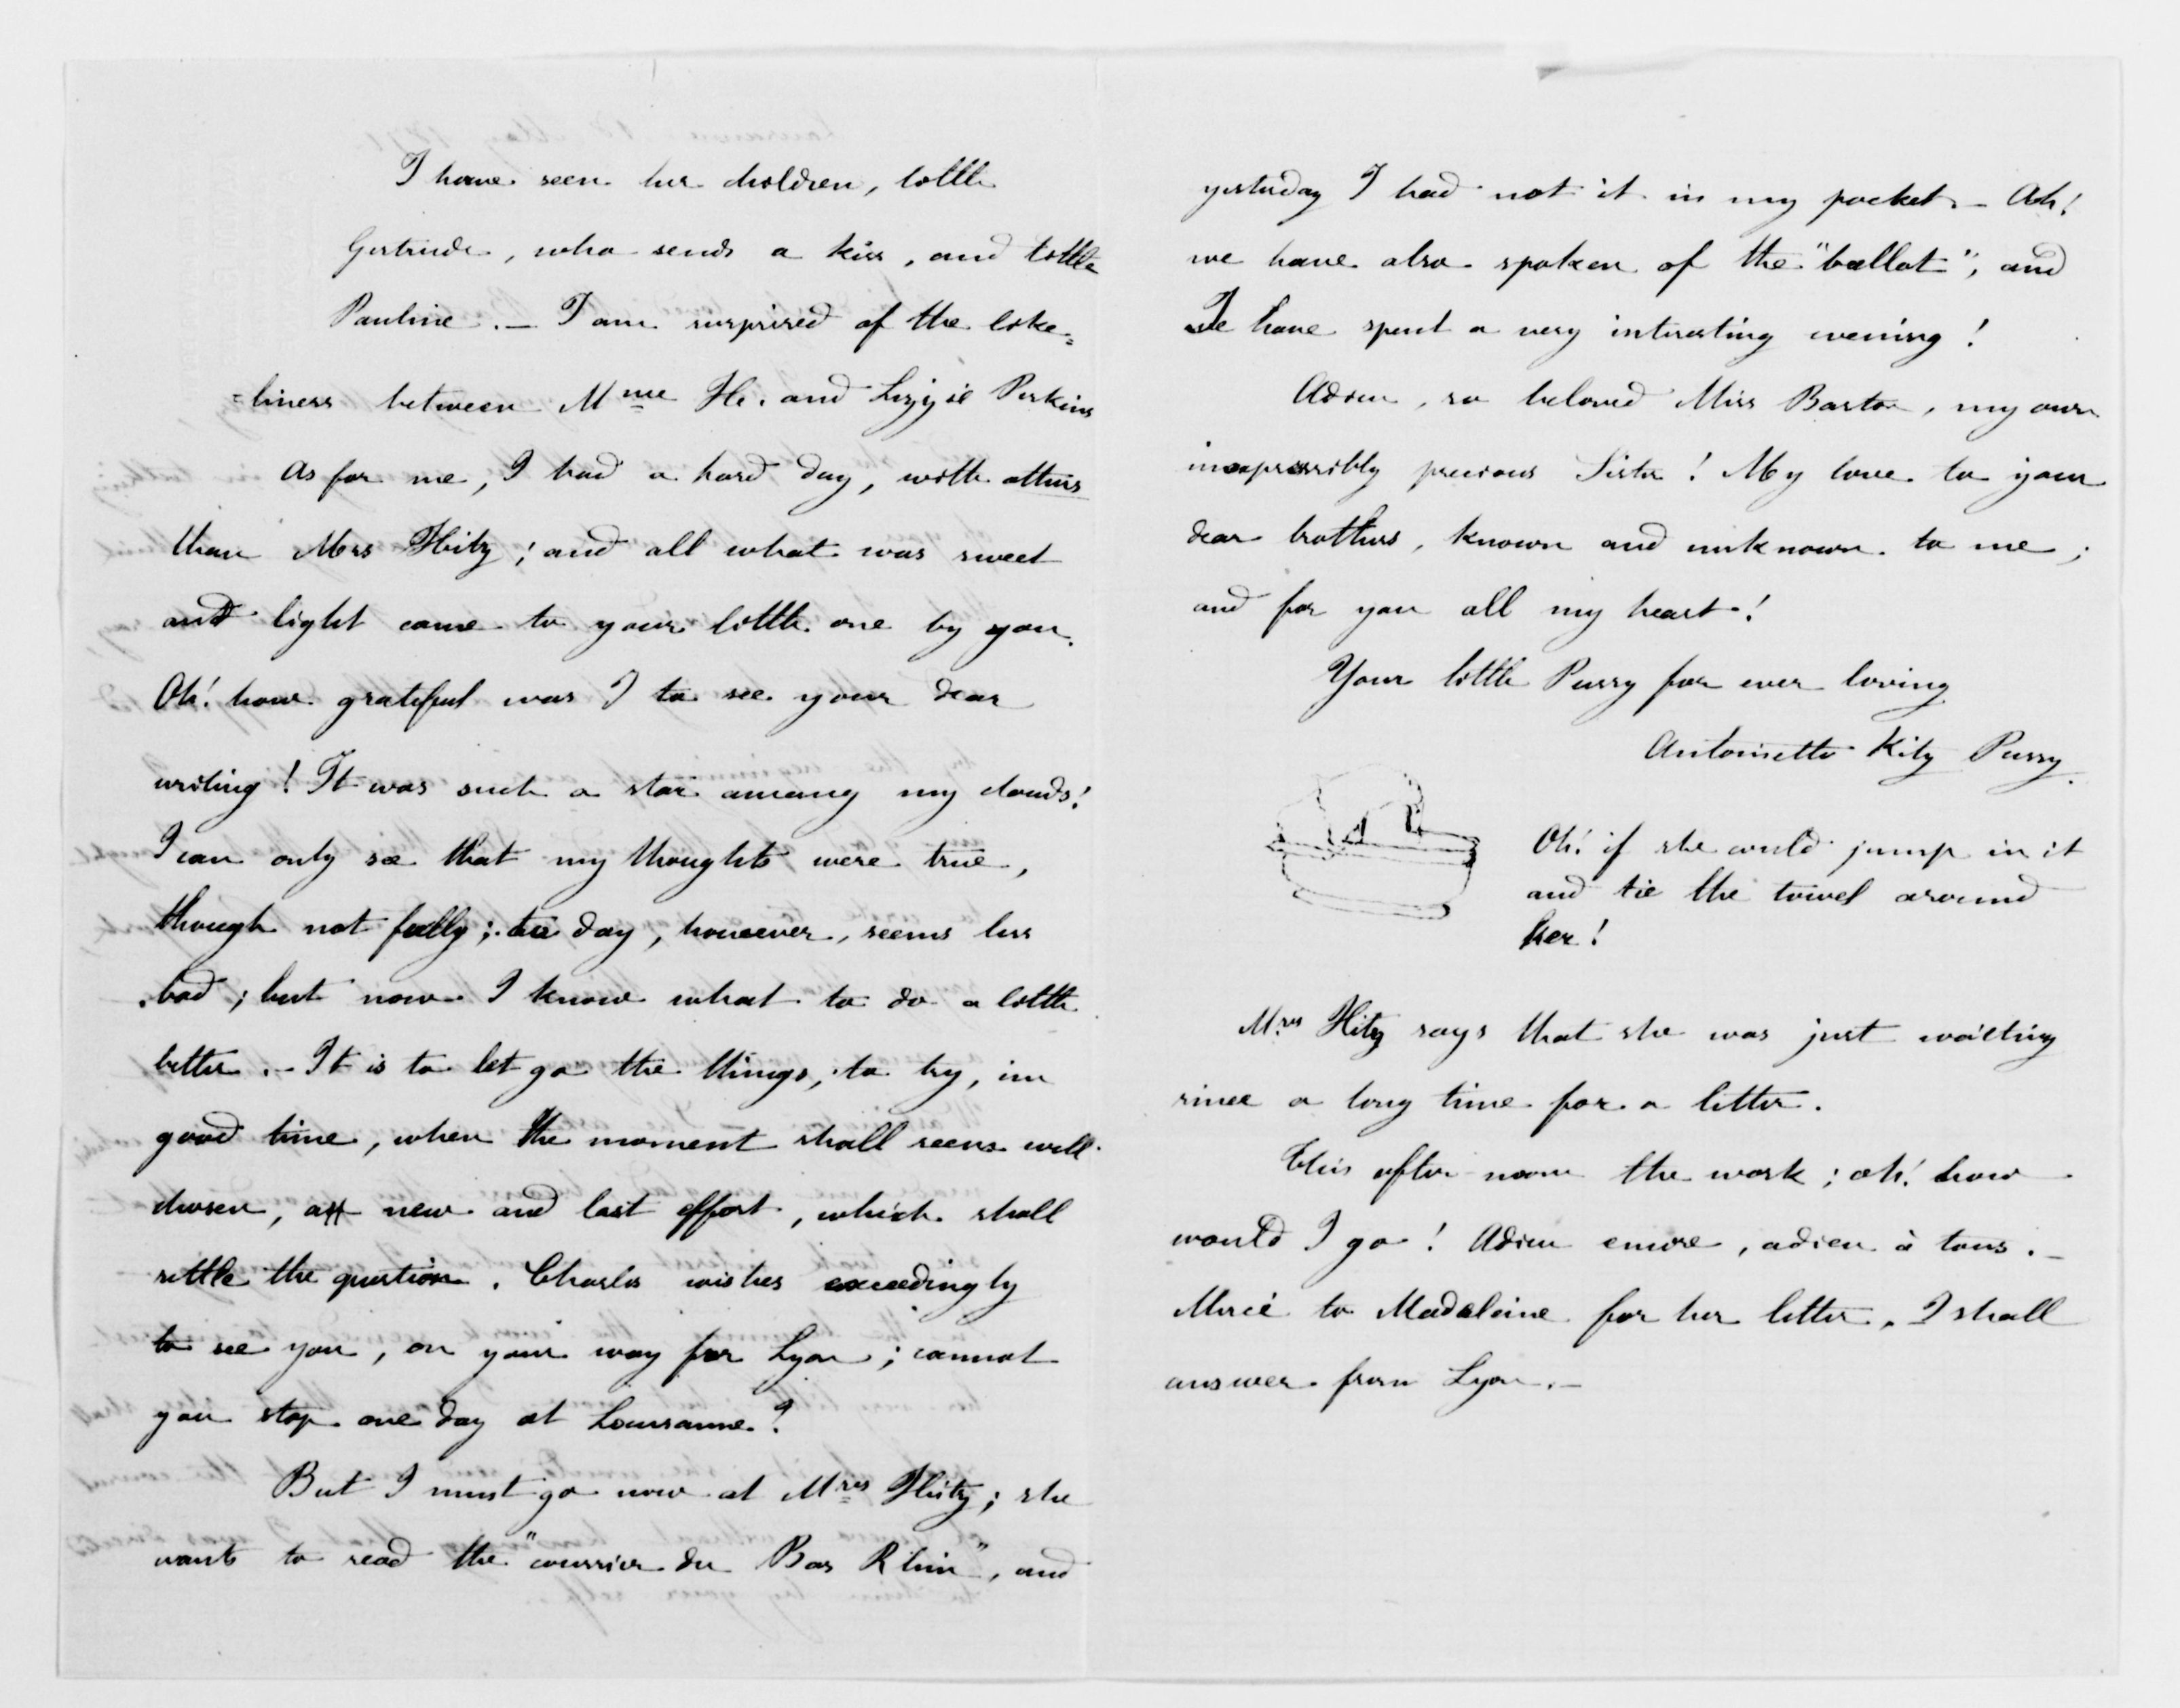 I have seen her children, little
Gertrude, who sends a kiss, and little
Pauline. — I am surprised of the like=
=liness between Mme Hi. and Lizzie Perkins
As for me, I had a hard day, with others
than Mrs Hitz; and all what was sweet
and light came to your little one by you.
Oh! how grateful was I to see your dear
writing! It was such a star among my clouds!
I can only see that my thoughts were true,
though not fully; day, however, seems less
bad; but now I know what to do a little
better. – It is to let go the things, to try, in
good time, when the moment shall seems well
chosen, a new and last effort, which shall
settle the question. Charles wishes exceedingly
to see you, on your way for Lyon; cannot
you stop one day at Lausanne?
But I must go now at Mrs Hitz; she
wants to read the "courrier du Bas Rhin", and
yesterday I had not it in my pocket. – Ah!
we have also spoken of the "ballot", and
have spent a very interesting evening!
Adieu, so beloved Miss Barton, my own
inexpressibly precious Sister! My love to your
dear brothers, known and unknown to me;
and for you all my heart!
Your little Pussy for ever loving
Antoinette Kitz Pussy.
Oh! if she could jump in it
and tie the towel around
her!
Mrs Hitz says that she was just waiting
since a long time for a letter.
This after noon the work; oh! how
would I go! Adieu encore, adieu à tous. –
Mercé to Madeleine for her letter. I shall
answer from Lyon. –